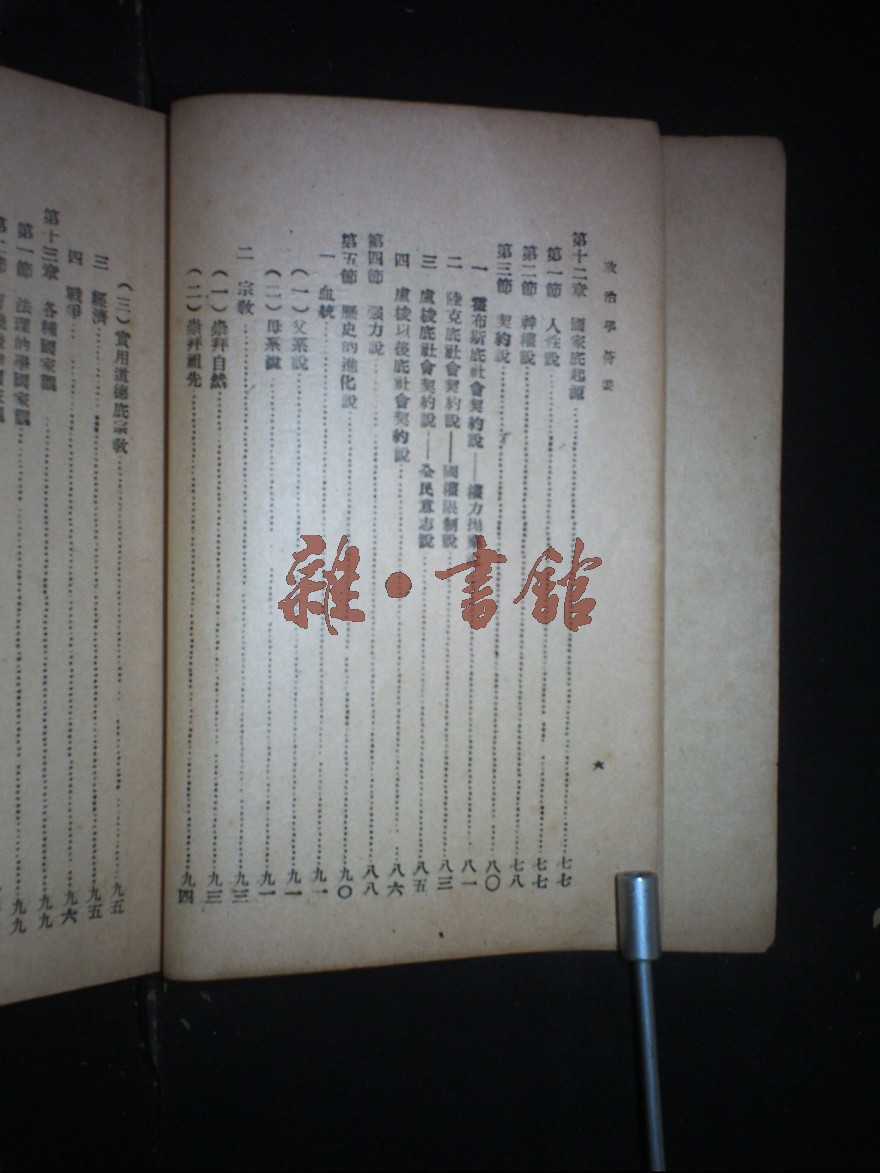 政治學
六
第十二章 國家底起源……七七
第一節 人性說……七七
第二節 神權說……七八
第三節 契約說……八〇
一 霍布斯底社會契約說——權力……八一
二 陸克底社會契約說——國權限制說……八三
三 盧梭底社會契約說——公民意志說……八五
四 盧梭以後底社會契約說……八六
第四節 强力說……八八
第五節 歷史的進化說……九〇
一 血統……九一
（一）父系說……九一
（二）母系說……九一
二 宗教……九三
（一）崇拜自然……九三
（二）崇拜祖先……九四
（三）實用道德底宗教……九五
三 經濟……九五
四 戰爭……九六
第十三章 各種國家觀……九九
第一節 法理的學國家觀……九九
雜·書館